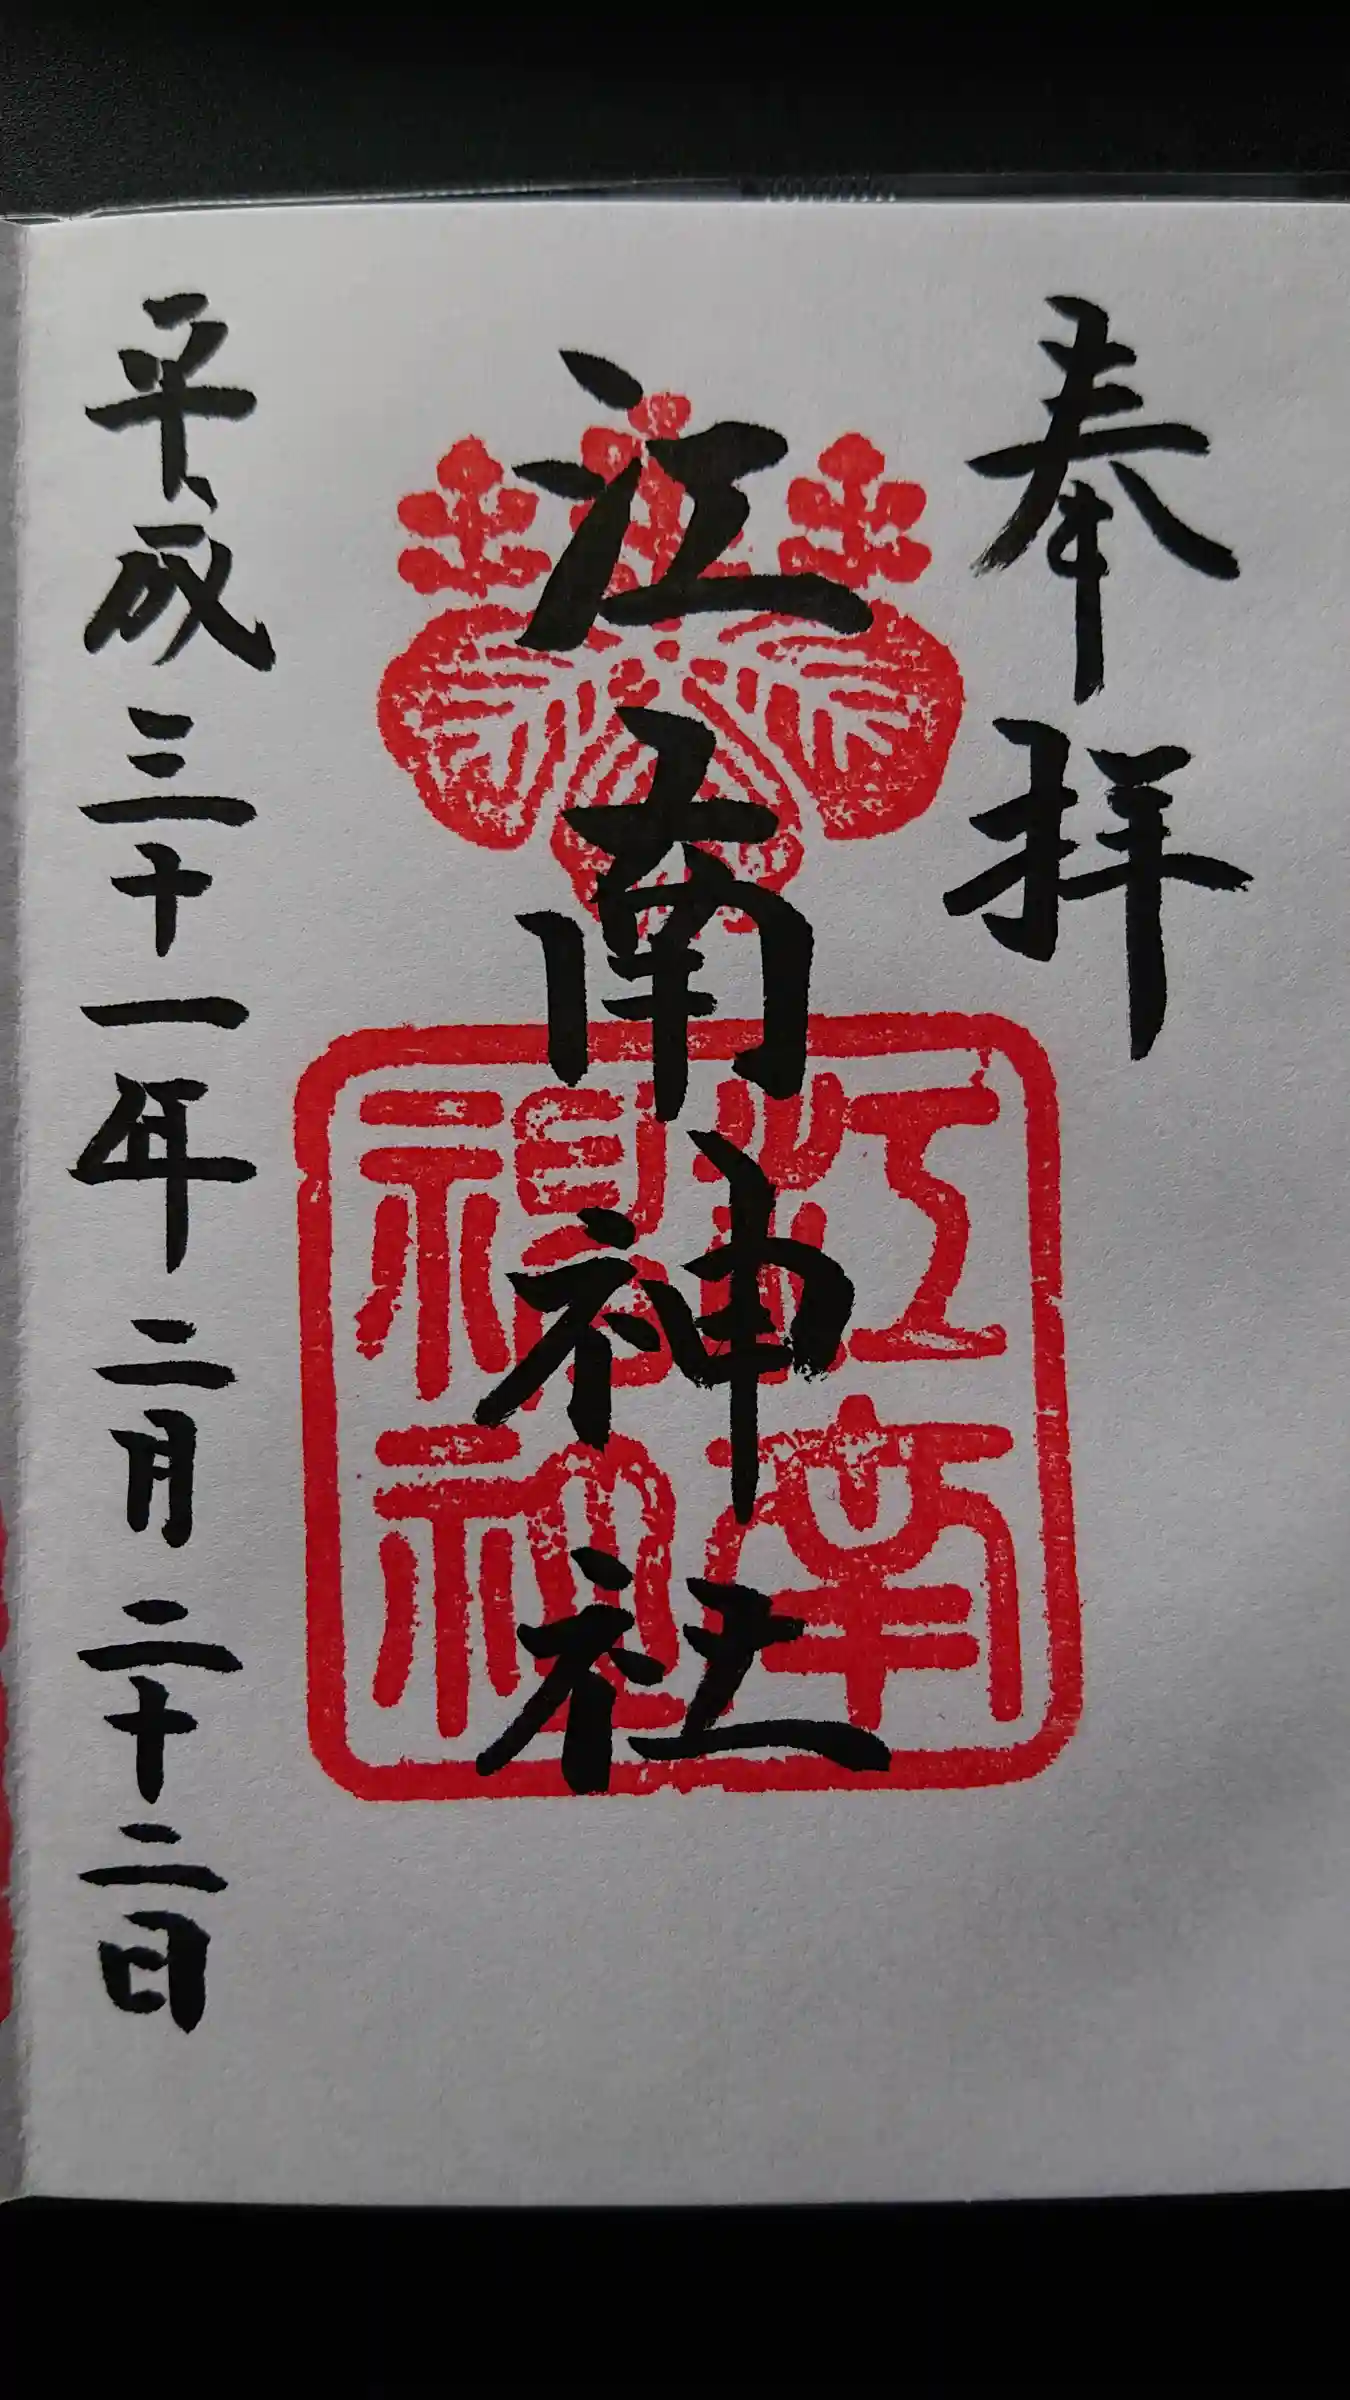 奉拝
江南神社
江南神社
平成三十一年二月二十二日